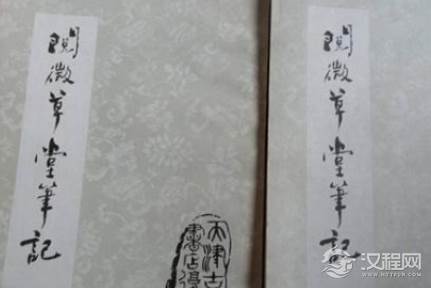 閱微草堂筆記
天津古
書店
閱微草堂筆記
汉程网